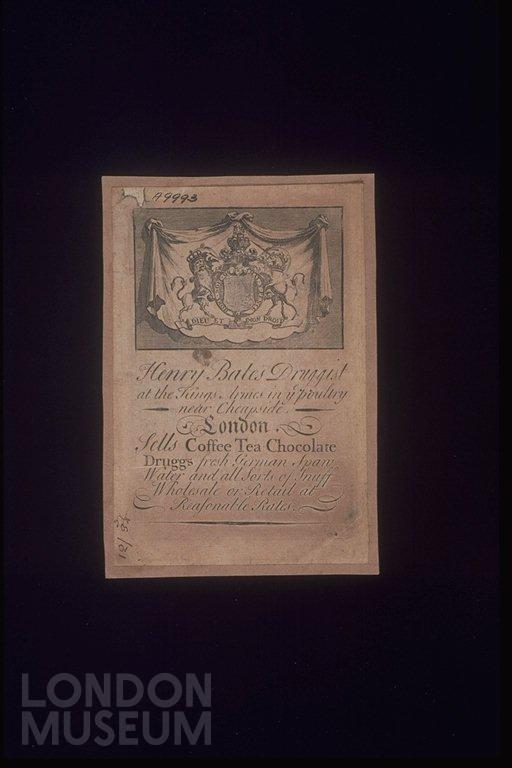 A9993
DIEU ET MON DROIT
Henry Bates Druggist
at the Kings Armes in ye Poultry
near Cheapside.
London.
Sells Coffee Tea Chocolate
Druggs fresh German Spaw
Water and all Sorts of Snuff
Wholesale or Retail at
Reasonable Rates.
LONDON
MUSEUM